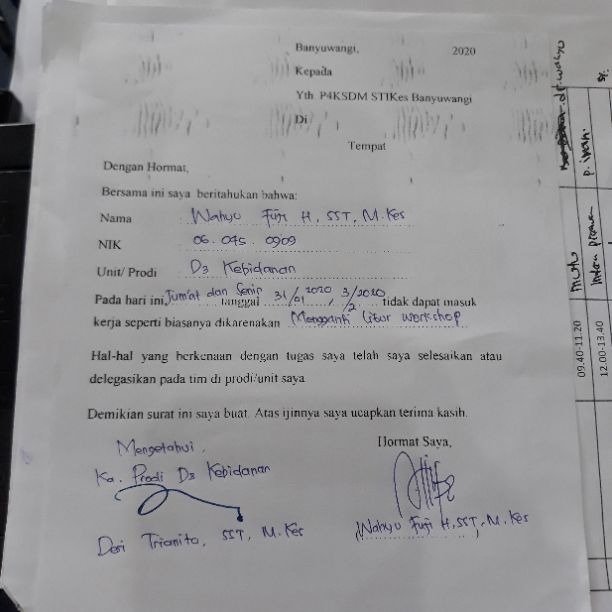 Banyuwangi, 2020
Kepada
Yth. P4KSDM STIKes Banyuwangi
Di
Tempat
Dengan Hormat,
Bersama ini saya beritahukan bahwa:
Nama Wahyu Fuji H, SST, M.Kes
NIK 06.045.0909
Unit/ Prodi D3 Kebidanan
Pada hari ini, Jum'at dan Senin tanggal 31/01 2020, 3/2 2020 tidak dapat masuk
kerja seperti biasanya dikarenakan Mengganti libur workshop
Hal-hal yang berkenaan dengan tugas saya telah saya selesaikan atau
delegasikan pada tim di prodi/unit saya
Demikian surat ini saya buat. Atas ijinnya saya ucapkan terima kasih.
Mengetahui,
Ka. Prodi D3 Kebidanan
Hormat Saya,
Desi Trianita, SST, M.Kes
(Wahyu Fuji H, SST, M.Kes)
09.40-11.20
12.00-13.40
P. Iwan.